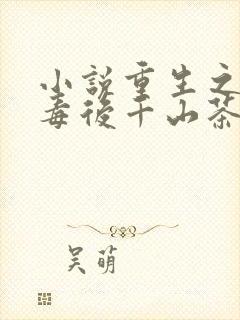 小说重生之
毒后千山茶
吴萌